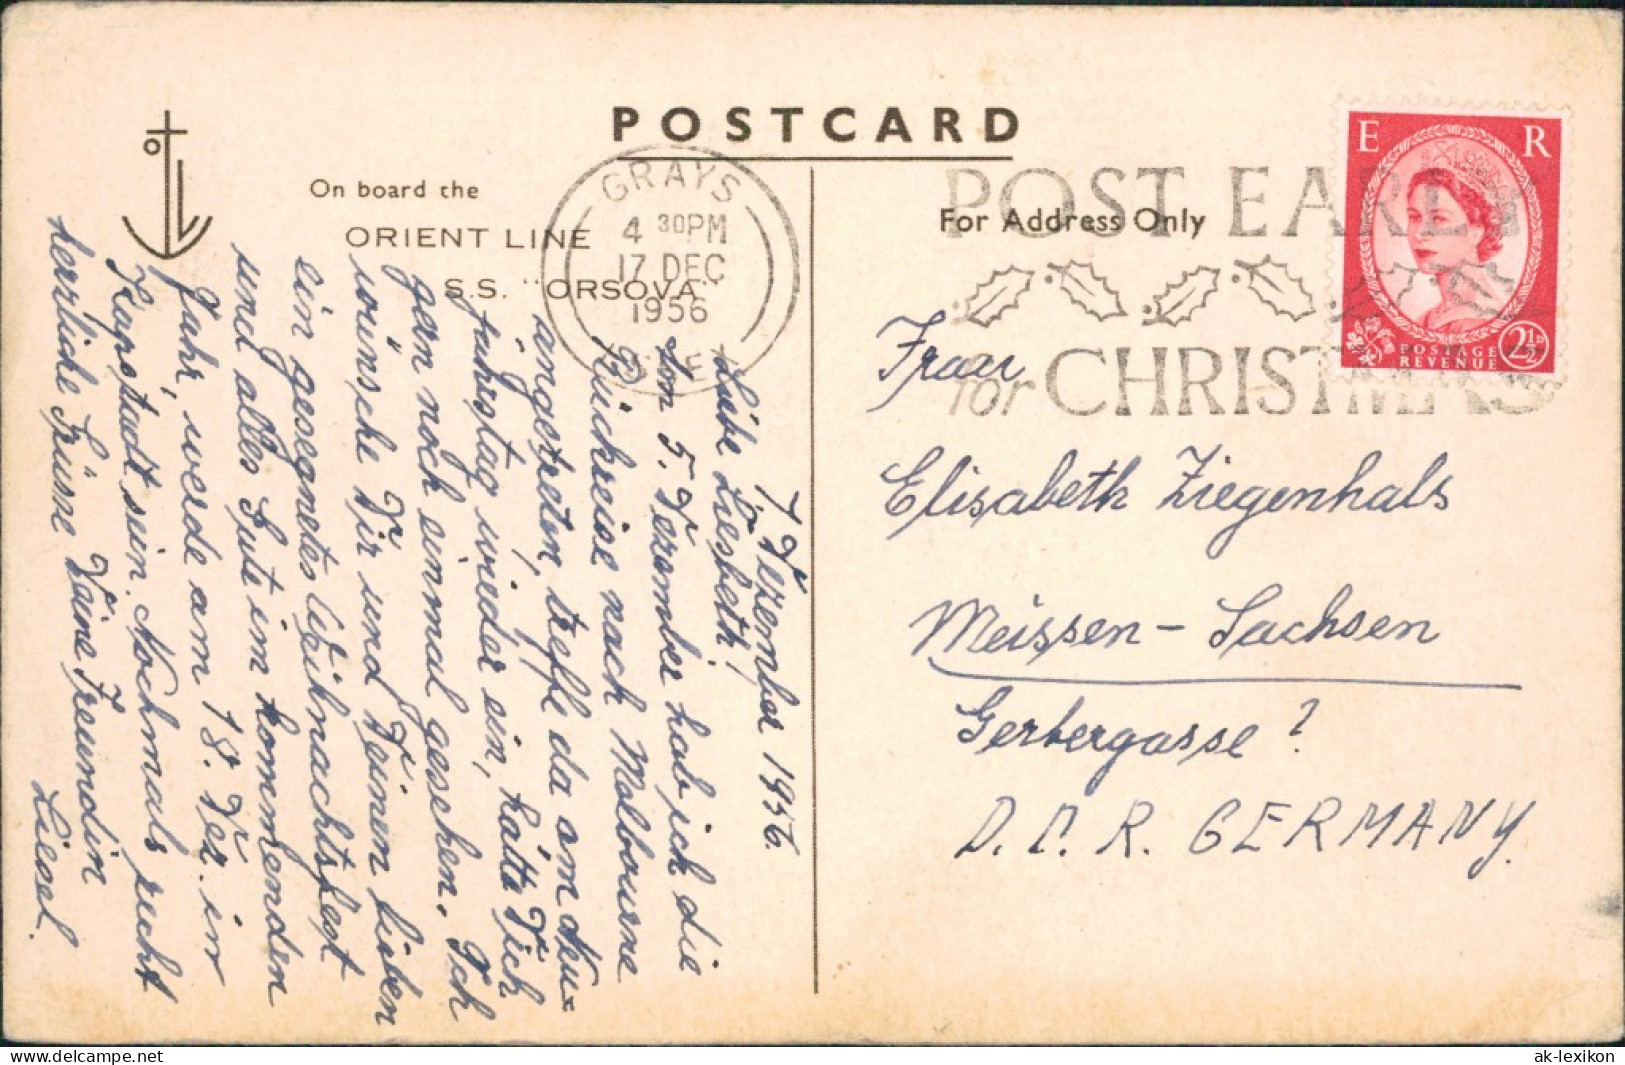 POSTCARD
On board the
ORIENT LINE
S.S. "ORSOVA"
GRAYS
4 30PM
17 DEC
1956
ESSEX
POST EARLY
for CHRISTMAS
For Address Only
E R
POSTAGE
REVENUE
2½D
7 Dezember 1956.
Liebe Liesbeth!
Am 5. Dezember hab ich die
Rückreise nach Melbourne
angetreten, treffe da am Neu=
jahrstag wieder ein, hätte Dich
gern noch einmal gesehen. Ich
wünsche Dir und Deinen Lieben
ein gesegnetes Weihnachtsfest
und alles Gute im kommenden
Jahr, werde am 18. Dez. in
Kapstadt sein. Nochmals recht
herzliche Grüsse Deine Freundin
Liesel.
Frau
Elisabeth Ziegenhals
Meissen - Sachsen
Gerbergasse ?
D. D. R. GERMANY.
ak-ansichtskarten.de
ak-lexikon